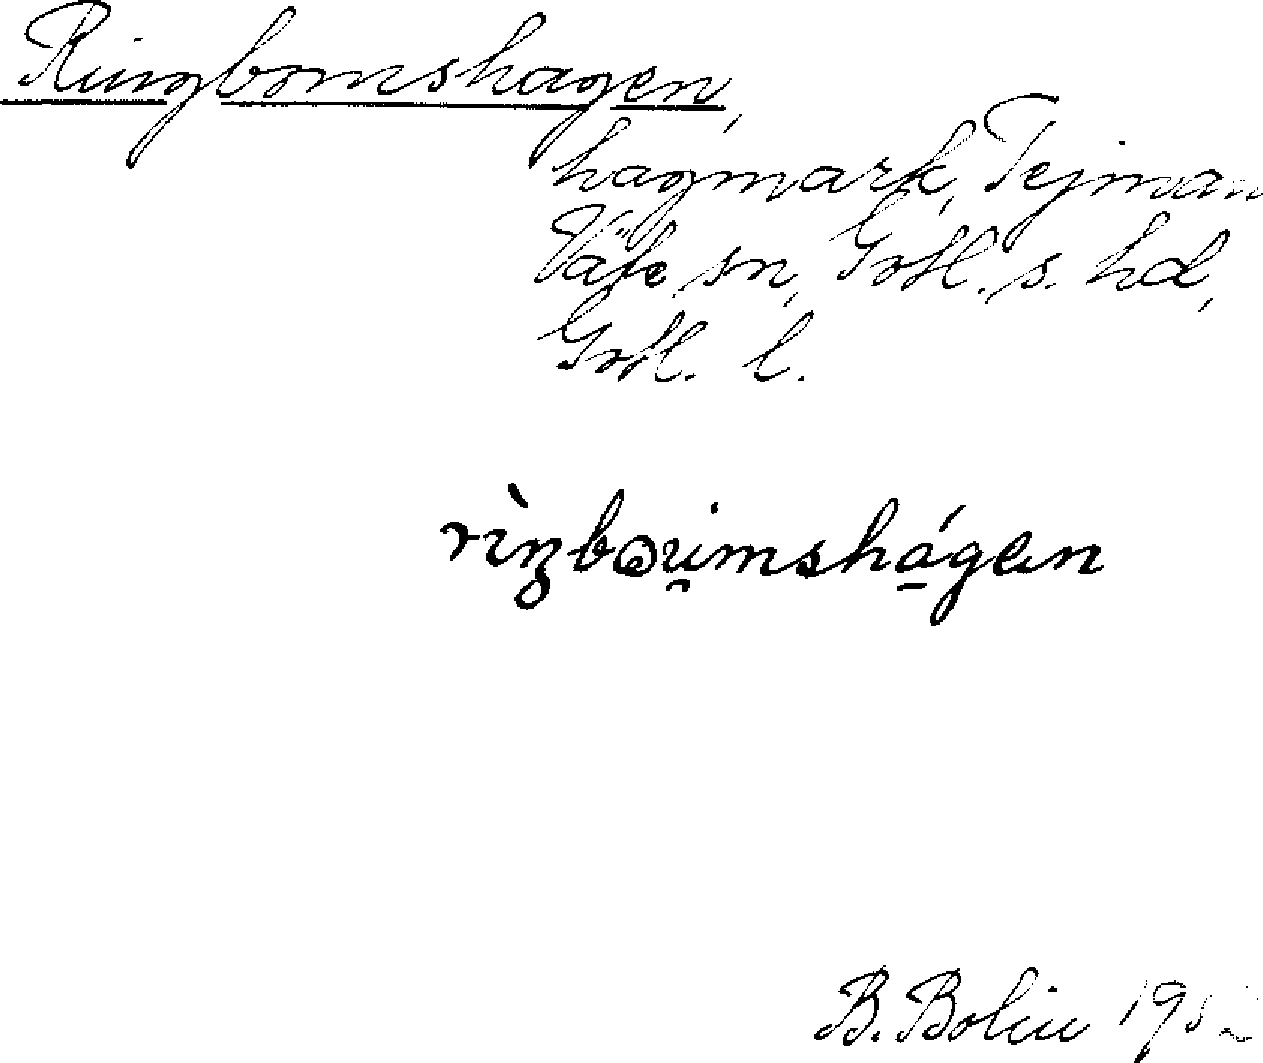 Ringbomshagen,
hagmark, Tejman
Väte sn, Gotl. s. hd,
Gotl. l.
rìŋbou̯mshá̱gen
B. Bolin